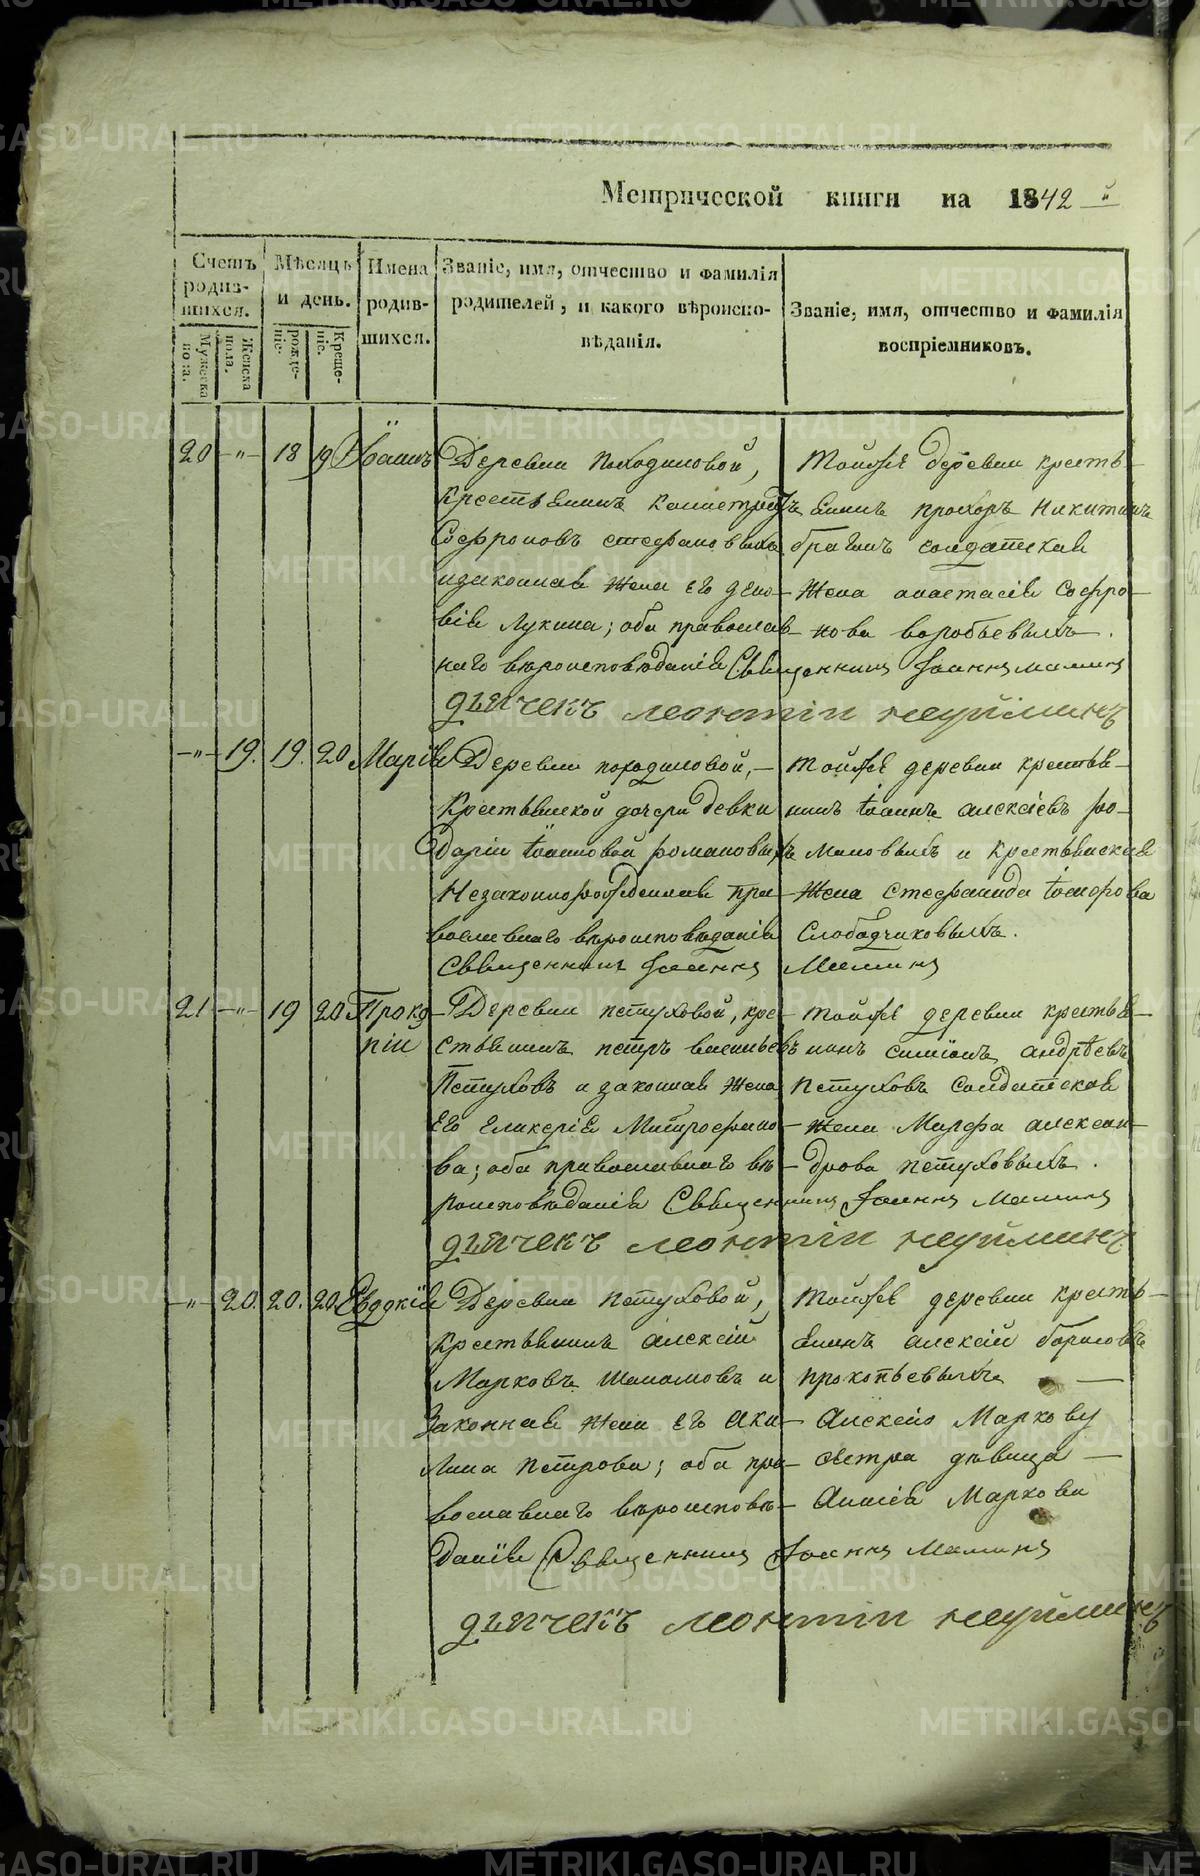 Метрической книги на 1842 й
Счетъ родившихся.
Мѣсяцъ и день.
Имена родившихся.
Званіе, имя, отчество и фамилія родителей, и какого вѣроисповѣданія.
Званіе, имя, отчество и фамилія воспріемниковъ.
Мужеска пола.
Женска пола.
рожденіе.
Крещеніе.
20 -"- 18 19 Іоаннъ
Деревни Походиловой,
Крестьянинъ Калистратъ
Софроновъ стефановыхъ
изаконная жена его Зено-
вія Лукина; оба православ-
наго вѣроисповѣданія Священникъ Іоаннъ Маминъ
дьячекъ леонтіи неуйминъ
Тойже деревни кресть-
янинъ прохоръ Никитинъ
брагинъ солдатская
жена анастасія софро-
нова воробьевыхъ.
-"- 19. 19. 20 Марія
Деревни походиловой, -
Крестьянской дочери девки
Даріи іоанновой романовыхъ
Незаконнорожденная пра-
вославнаго вѣроисповѣданія
Священникъ Іоаннъ Маминъ
Тойже деревни крестья-
нинъ іоаннъ алексіевъ ро-
мановыхъ и крестьянская
жена стефанида іосифова
Слободчиковыхъ.
21 -"- 19 20 Проко-
піи
Деревни петуховой, кре-
стьянинъ петръ васильевъ
Петуховъ и законная жена
его гликерія Митрофано-
ва; оба православнаго вѣ-
роисповѣданія Священникъ Іоаннъ Маминъ
дьячекъ леонтіи неуйминъ
тойже деревни крестья-
нинъ симіонъ андрѣевъ
петуховъ солдатская
жена Марфа алексан-
дрова петуховыхъ.
-"- 20. 20. 20 Евдокія
Деревни Петуховой,
крестьянинъ алексій
Марковъ шаламовъ и
законная жена его Аки-
лина петрова; оба пра-
вославнаго вѣроисповѣ-
данія Священникъ Іоаннъ Маминъ
дьячекъ леонтіи неуйминъ
тойже деревни кресть-
янинъ алексій борисовъ
прокопьевыхъ -
Алексію Маркову
сестра дѣвица -
Аннія Маркова
METRIKI.GASO-URAL.RU